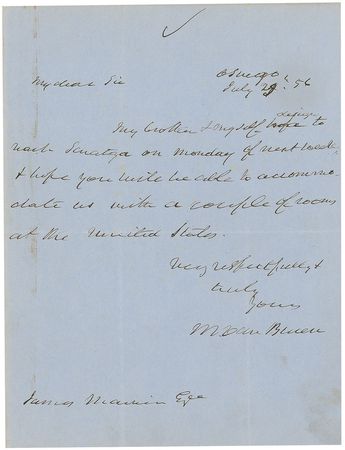 Oswego
July 29th. 56
My dear Sir
My brother & myself hope desire to
reach Saratoga on Monday of next week,
& hope you will be able to accommo-
date us with a couple of rooms
at the United States.
Very respectfully &
truly
Yours
M Van Buren
James Marvin Esqr